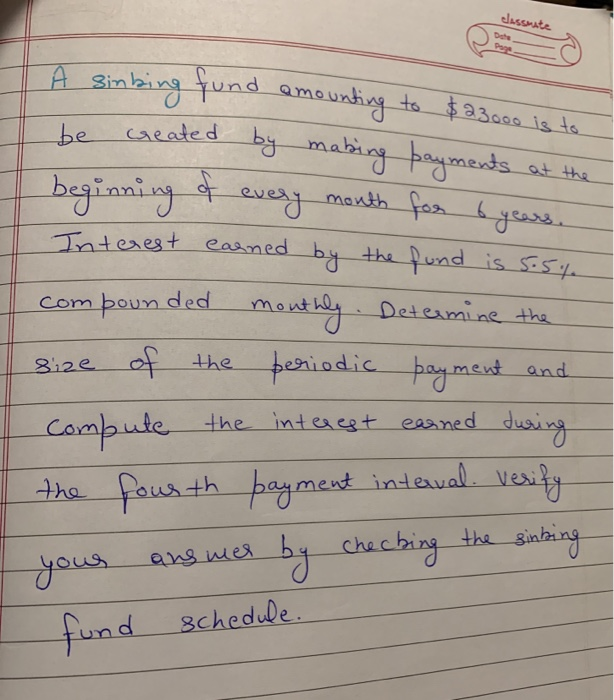 classmate
Date
Page
A sinking fund amounting to $23000 is to
be created by making payments at the
beginning of every month for 6 years.
Interest earned by the fund is 5.5%
compounded monthly. Determine the
size of the periodic payment and
compute the interest earned during
the fourth payment interval. Verify
your answer by checking the sinking
fund schedule.